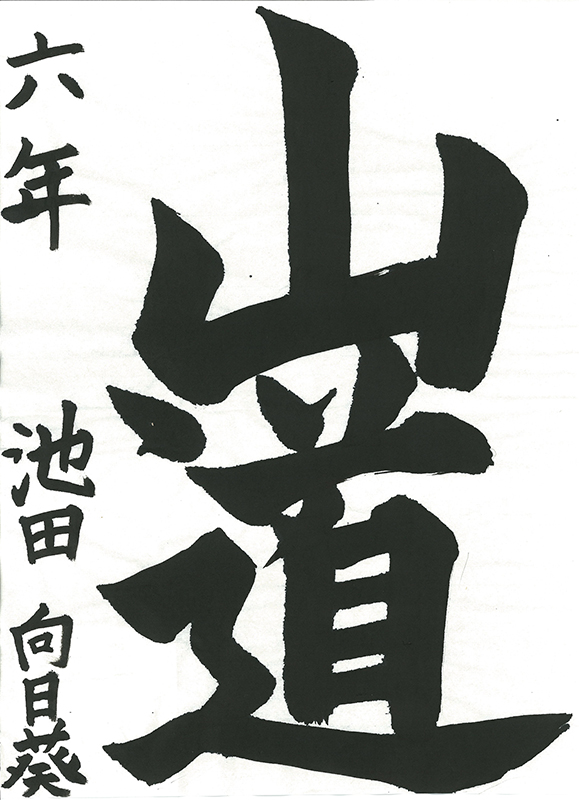 山道
六年 池田 向日葵